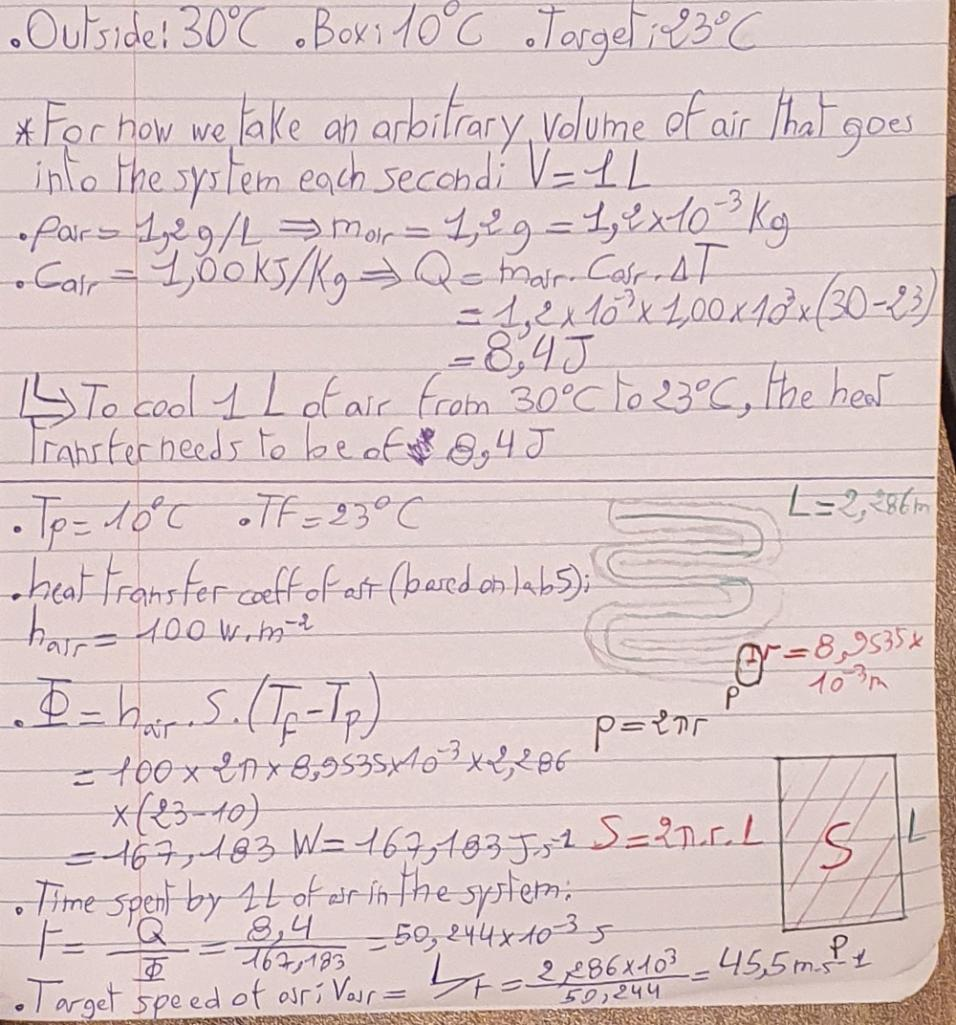 .Outside: 30°C .Box: 10°C .Target: 23°C
*For now we take an arbitrary volume of air that goes
into the system each second: V=1L
.ρair= 1,2g/L ⇒ mair= 1,2g = 1,2x10⁻³ Kg
.Cair = 1,00KJ/Kg ⇒ Q= mair.Cair.ΔT
= 1,2x10⁻³x1,00x10³x(30-23)
= 8,4J
↳ To cool 1L of air from 30°C to 23°C, the heat
transfer needs to be of 8,4J
.Tp= 10°C .Tf= 23°C
L=2,286m
.heat transfer coeff of air (based on lab5):
hair= 100 W.m⁻²
r=8,9535x
10⁻³m
P
.Φ = hair.S.(Tf-Tp)
P=2πr
= 100x2πx8,9535x10⁻³x2,286
x(23-10)
= 167,183 W= 167,183J.s⁻¹
S=2π.r.L
S
L
P
.Time spent by 1L of air in the system:
t= Q/Φ = 8,4/167,183 = 50,244x10⁻³ s
.Target speed of air: Vair= L/t = 2,286x10³/50,244 = 45,5m.s⁻¹